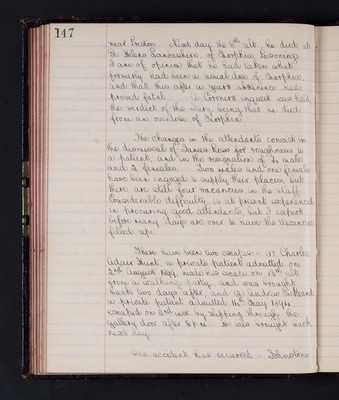 147
near Preston. Next day, the 8th ult, he died at
St Helens Lancashire, of Morphia Poisoning.
I am of opinion that he had taken what
formerly had been a usual dose of Morphia,
and that this after a years abstinence had
proved fatal. A Coroners inquest was held
the verdict of the Jury being that he died
from an overdose of Morphia
The changes in the attendants consist in
the dismissal of James Ross for roughness to
a patient, and in the resignation of 4 males
and 2 females. Two males and one female
have been engaged to supply their places, but
there are still four vacancies in the staff.
Considerable difficulty is at present experienced
in procuring good attendants, but I expect
before many days are over to have the vacancies
filled up.
There have been two escapes:- (1) Charles
Adair Hunt a private patient admitted on
2nd August 1894 made his escape on 13th ult
from a walking party, and was brought
back two days after, and (2) Andrew
a private patient admitted 14th May 1894
escaped on 2nd inst by slipping through the
gallery door after 8 P.M. He was brought back
next day.
One accident has occurred. Johnstone